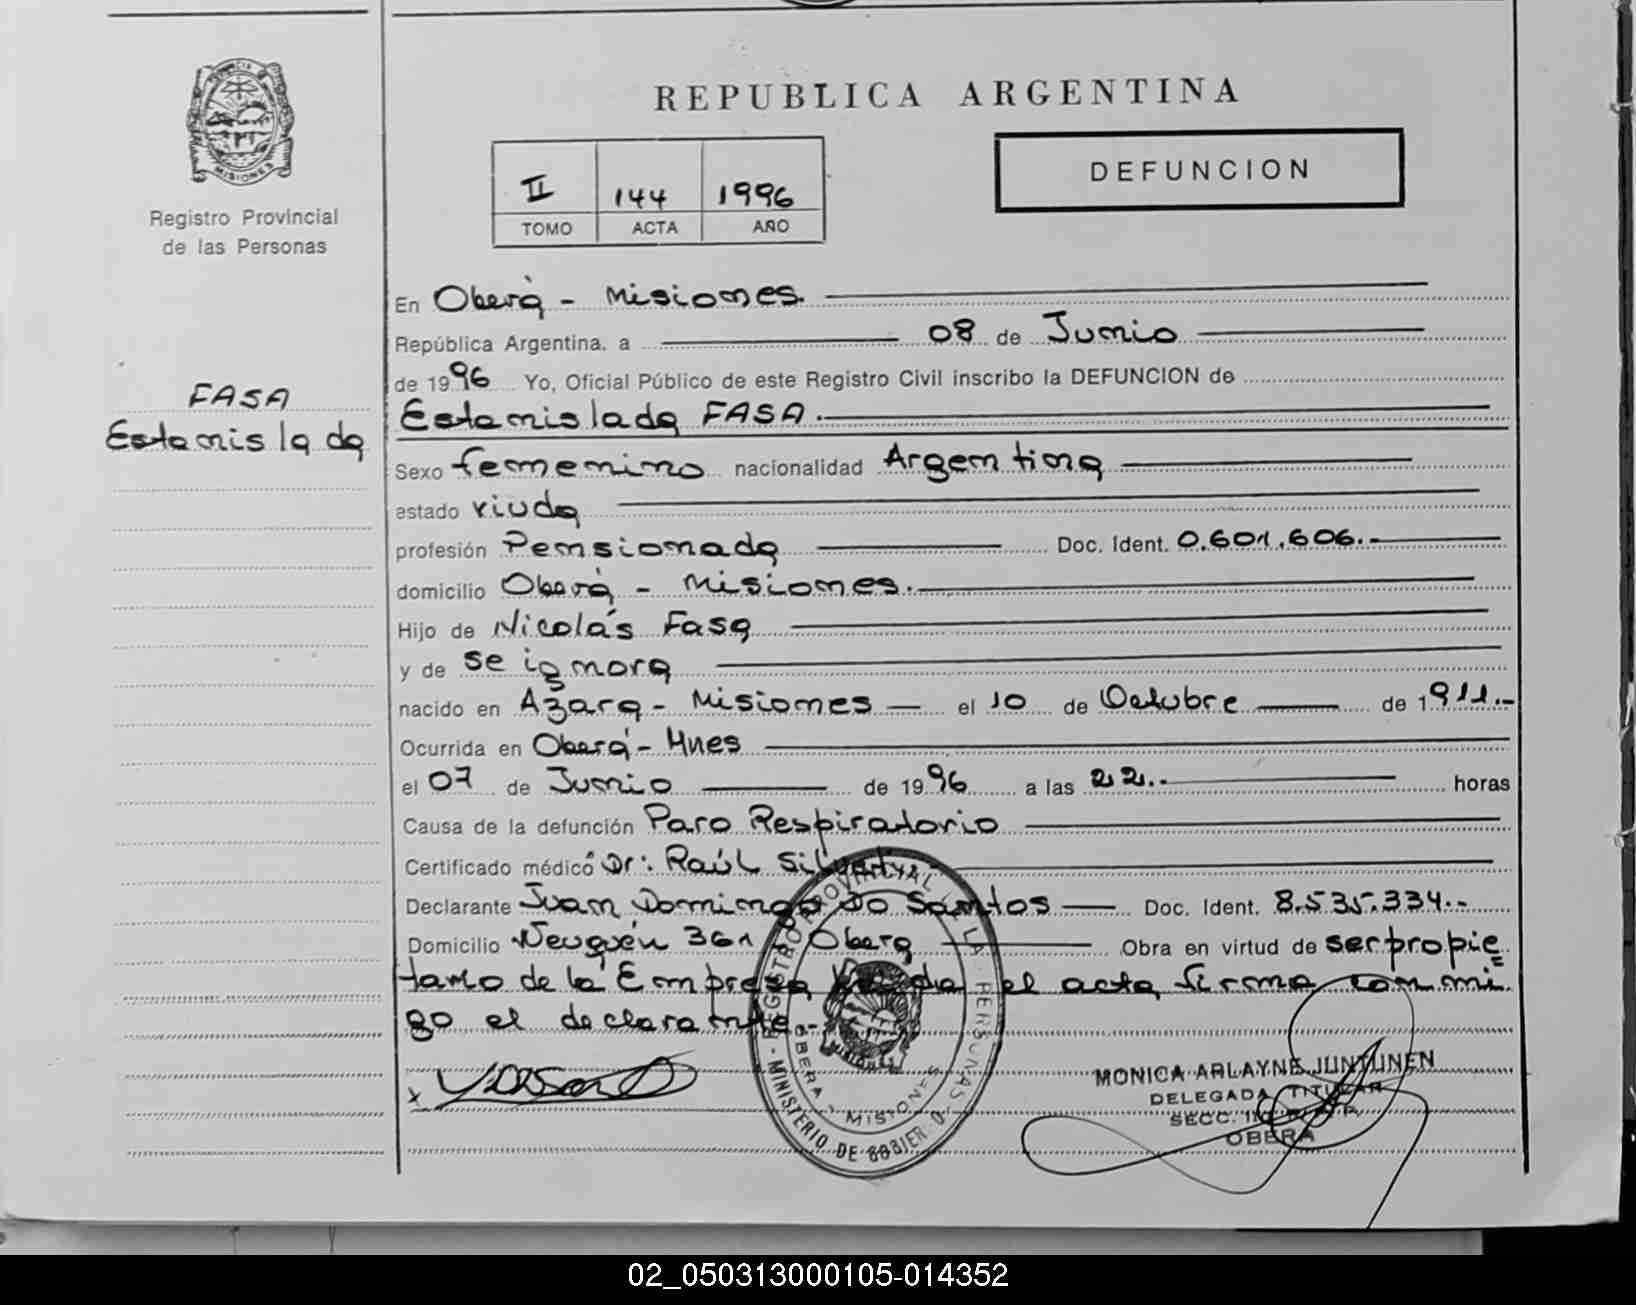 REPUBLICA ARGENTINA
PROVINCIA
MISIONES
Registro Provincial
de las Personas
II 144 1996
TOMO ACTA AÑO
DEFUNCION
FASA
Estanislada
En Oberá - Misiones.
República Argentina, a 08 de Junio
de 1996 Yo, Oficial Público de este Registro Civil inscribo la DEFUNCION de
Estanislada FASA.
Sexo femenino nacionalidad Argentina
estado viuda
profesión Pensionada Doc. Ident. 0.601.606.-
domicilio Oberá - Misiones.
Hijo de Nicolás Fasa
y de se ignora
nacido en Azara - Misiones el 10 de Octubre de 1911.-
Ocurrida en Oberá - Mnes
el 07 de Junio de 1996 a las 22.- horas
Causa de la defunción Paro Respiratorio
Certificado médico Dr: Raúl
Declarante Juan Domingo Do Santos Doc. Ident. 8.535.334.-
Domicilio Neuquén 361 Obera Obra en virtud de ser propie=
tario de la Empresa el acta firma conmi
go el declarante.-
REGISTRO PROVINCIAL DE LAS PERSONAS - MINISTERIO DE GOBIER.
OBERA - MISIONES
MONICA ARLAYNE JUNTUNEN
DELEGADA TITULAR
SECC.
OBERA
02_050313000105-014352